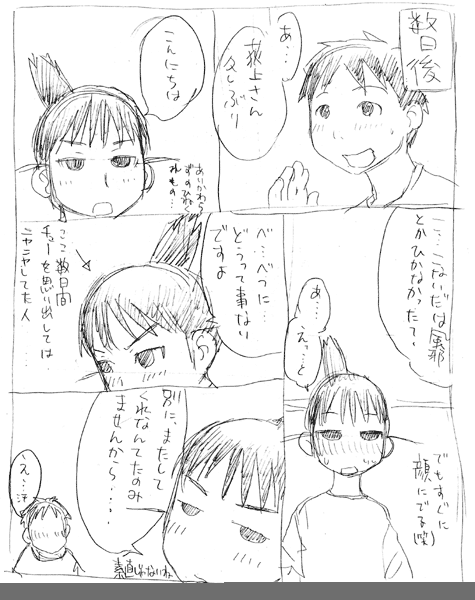 数日後
あ…
荻上さん
久しぶり
こんにちは
あいかわらず
れもの…
こ…こないだは風邪
とかひかなかったて?
あ…
え…っと
べ…べつに…
どうって事ない
ですよ
ここ数日間
チューを思い出しては
ニヤニヤしてた人
でもすぐに
顔にでる(笑)
別に、またして
くれなんてたのみ
ませんから……
え…汗
素直じゃないね